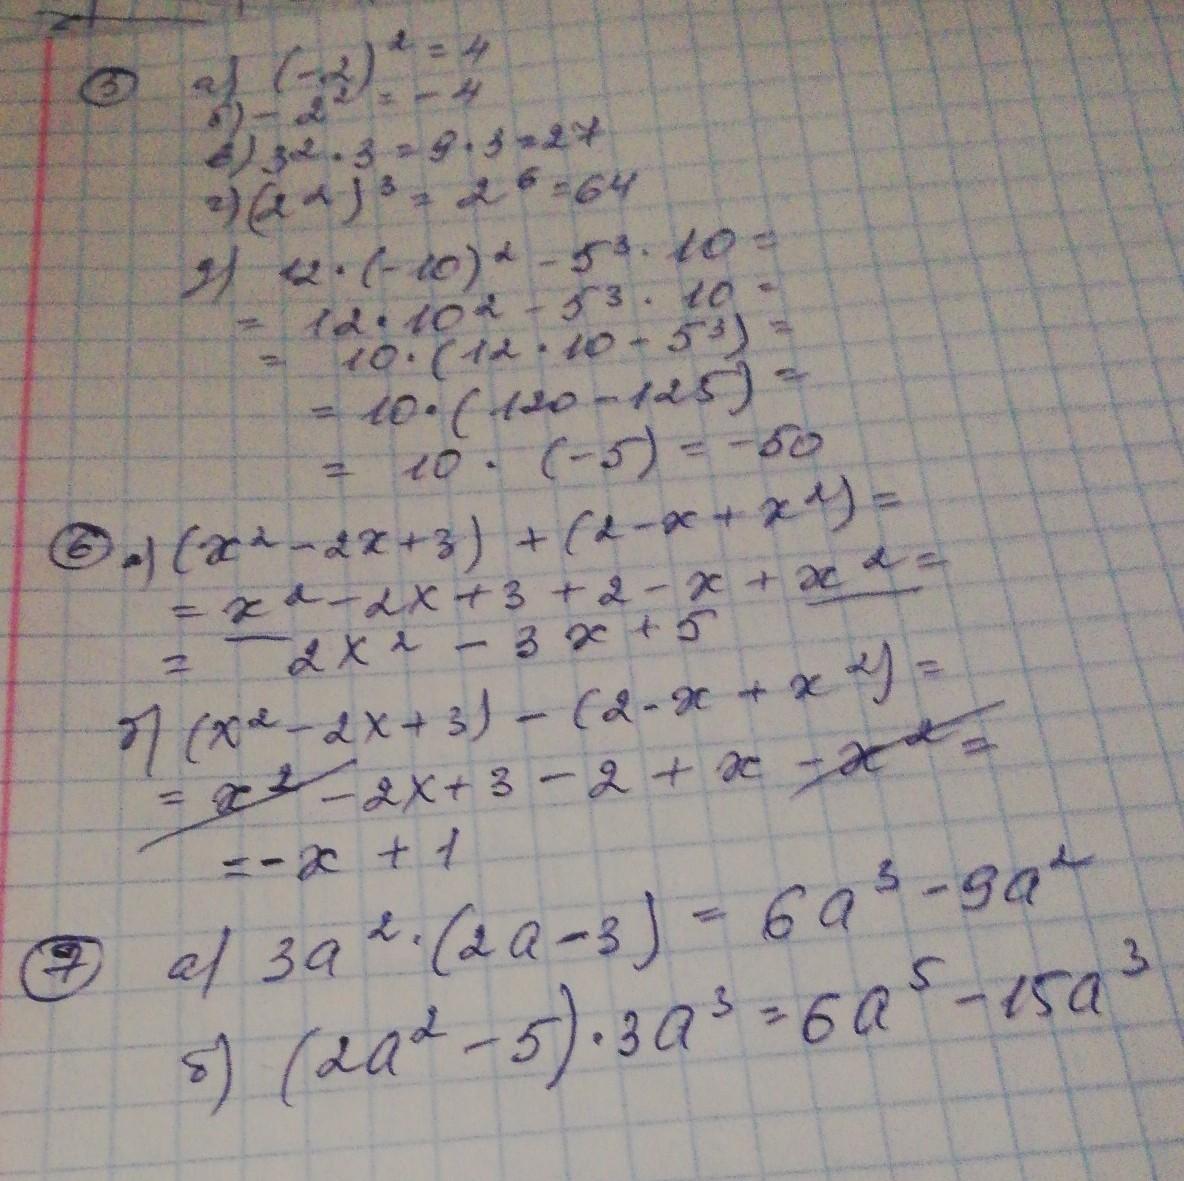 5 а) (-2)² = 4
б) - 2² = - 4
в) 3² · 3 = 9 · 3 = 27
г) (2²)³ = 2⁶ = 64
д) 12 · (-10)² - 5³ · 10 =
= 12 · 10² - 5³ · 10 =
= 10 · (12 · 10 - 5³) =
= 10 · (120 - 125) =
= 10 · (-5) = -50
6 а) (x² - 2x + 3) + (2 - x + x²) =
= x² - 2x + 3 + 2 - x + x² =
= 2x² - 3x + 5
б) (x² - 2x + 3) - (2 - x + x²) =
= x² - 2x + 3 - 2 + x - x² =
= - x + 1
7 а) 3a² · (2a - 3) = 6a³ - 9a²
б) (2a² - 5) · 3a³ = 6a⁵ - 15a³